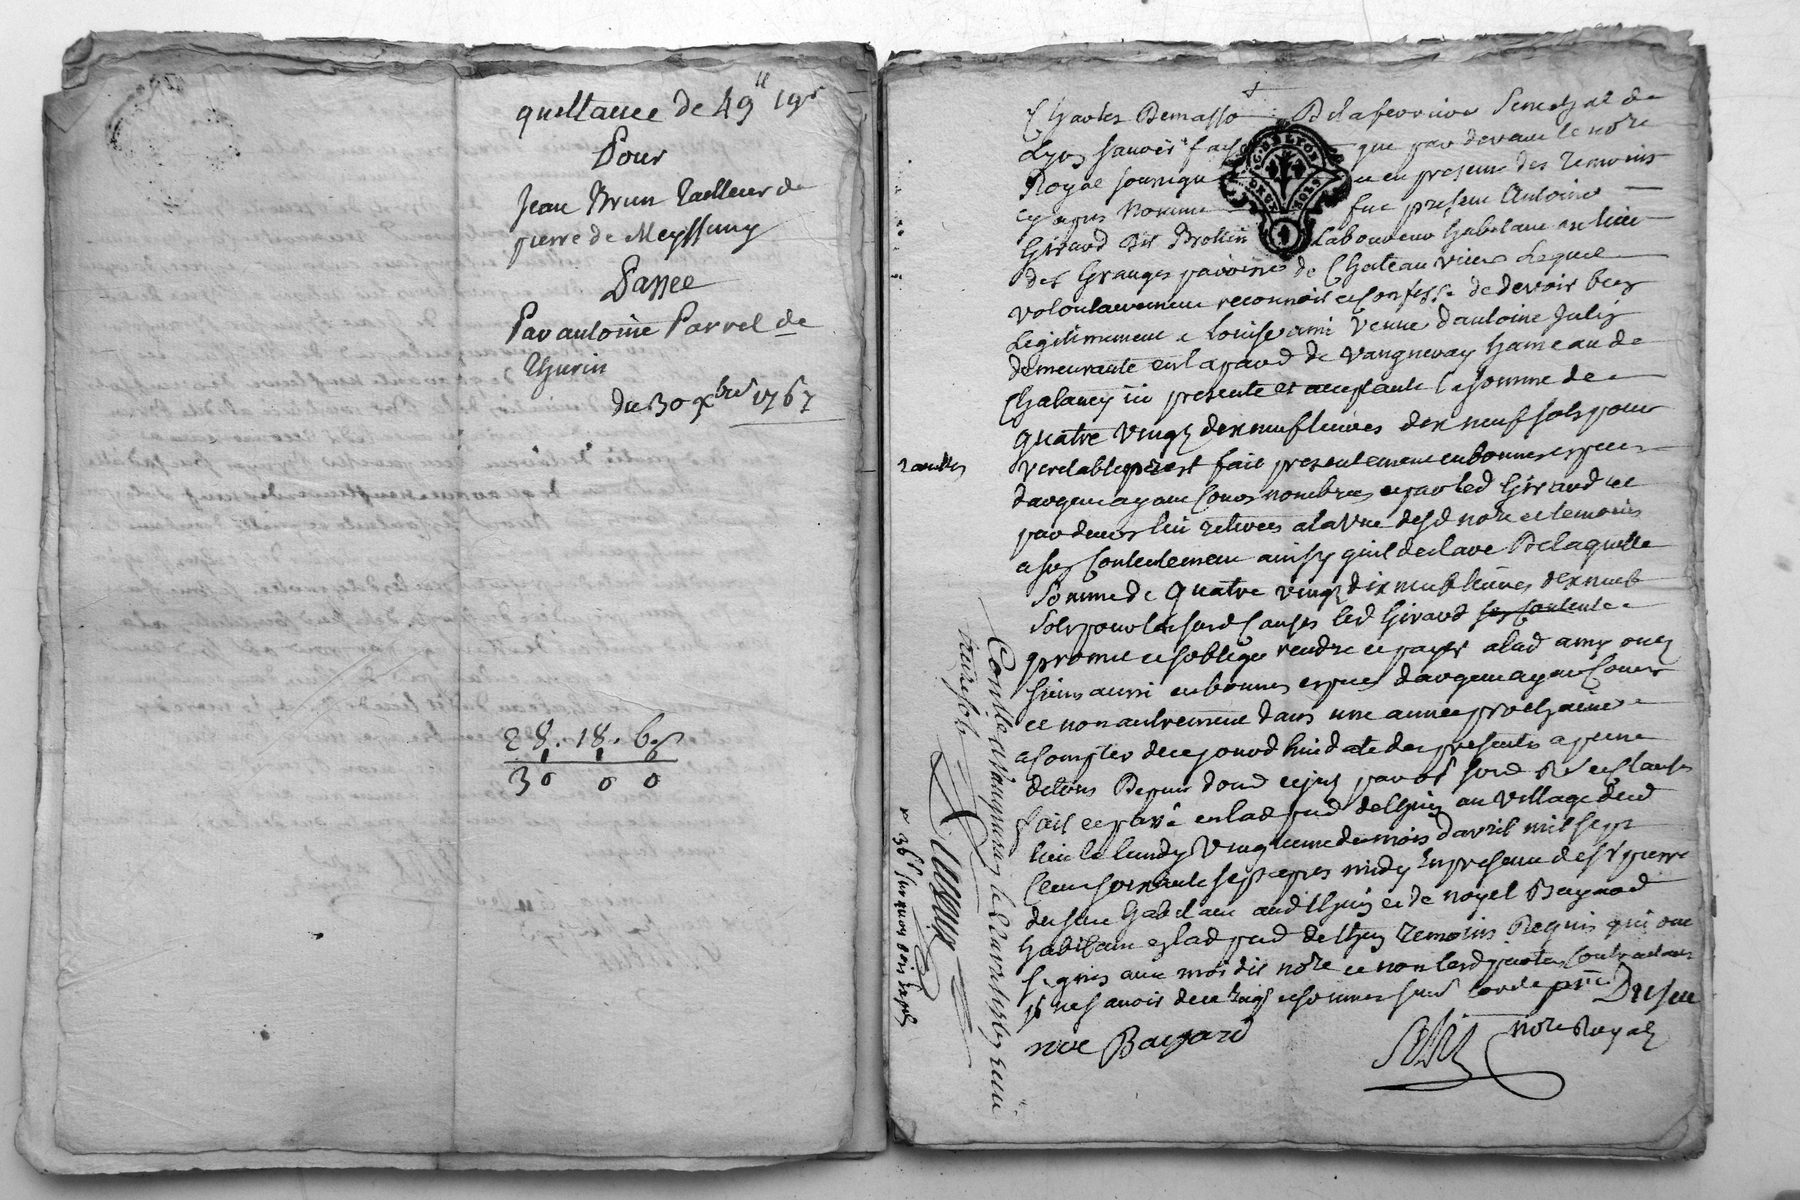 quittance de 49ll 19s
Pour
Jean Brun tailleur de
pierre de Meyssimy
Passée
Par antoine Parrel de
Thurin
du 30 xbre 1767
28. 18. 6
30 0 0
Charles Demasso Delaferriere Senechal de
Lyon scavoir fais que par devant le nore
Royal soussigné et en presence des temoins
cy apres nommé fut present Antoine
Girard dit Brottin laboureur habitant au lieu
des Granges paroisse de Chateau vieux Lequel
volontairement reconnoit et confesse de devoir bien
legitimement a Louise ami veuve d'antoine Juliy
demeurante en la pard de Vaugneray hameau de
Chalancy ici presente et acceptante la somme de
quatre vingt dix neuf livres dix neuf sols pour
veritable prest fait presentement en bonnes especes
d'argent ayant cours nombrées et par led Girard et
par devers lui retirees a la vue desd nore et temoins
a son contentement ainsy qu'il declare De laquelle
somme de quatre vingt dix neuf livres dix neuf
sols pour les susd causes led Girard son contente
promet et s'oblige rendre et payer a lad amy ou es
siens aussi en bonnes especes d'argent ayant cours
et non autrement dans une année prochaine
a compter de ce jourd'hui date des presentes a peine
de tous Depens dom et jnt par
fait et passé en lad pard de au village dud
lieu le lundy vingtieme du mois d'avril mil sept
cent soixante sept apres midy En presence de sr pierre
habitant aud et de noyel Bayard
habitant en lad pard de temoins Requis qui ont
signés avec moi dit nore et non lesd parties contractantes
pr ne scavoir de ce enquis et sommes
noé Bayard
nore Royal
2 roolles
Conllé a Vaugneray le
treize sols